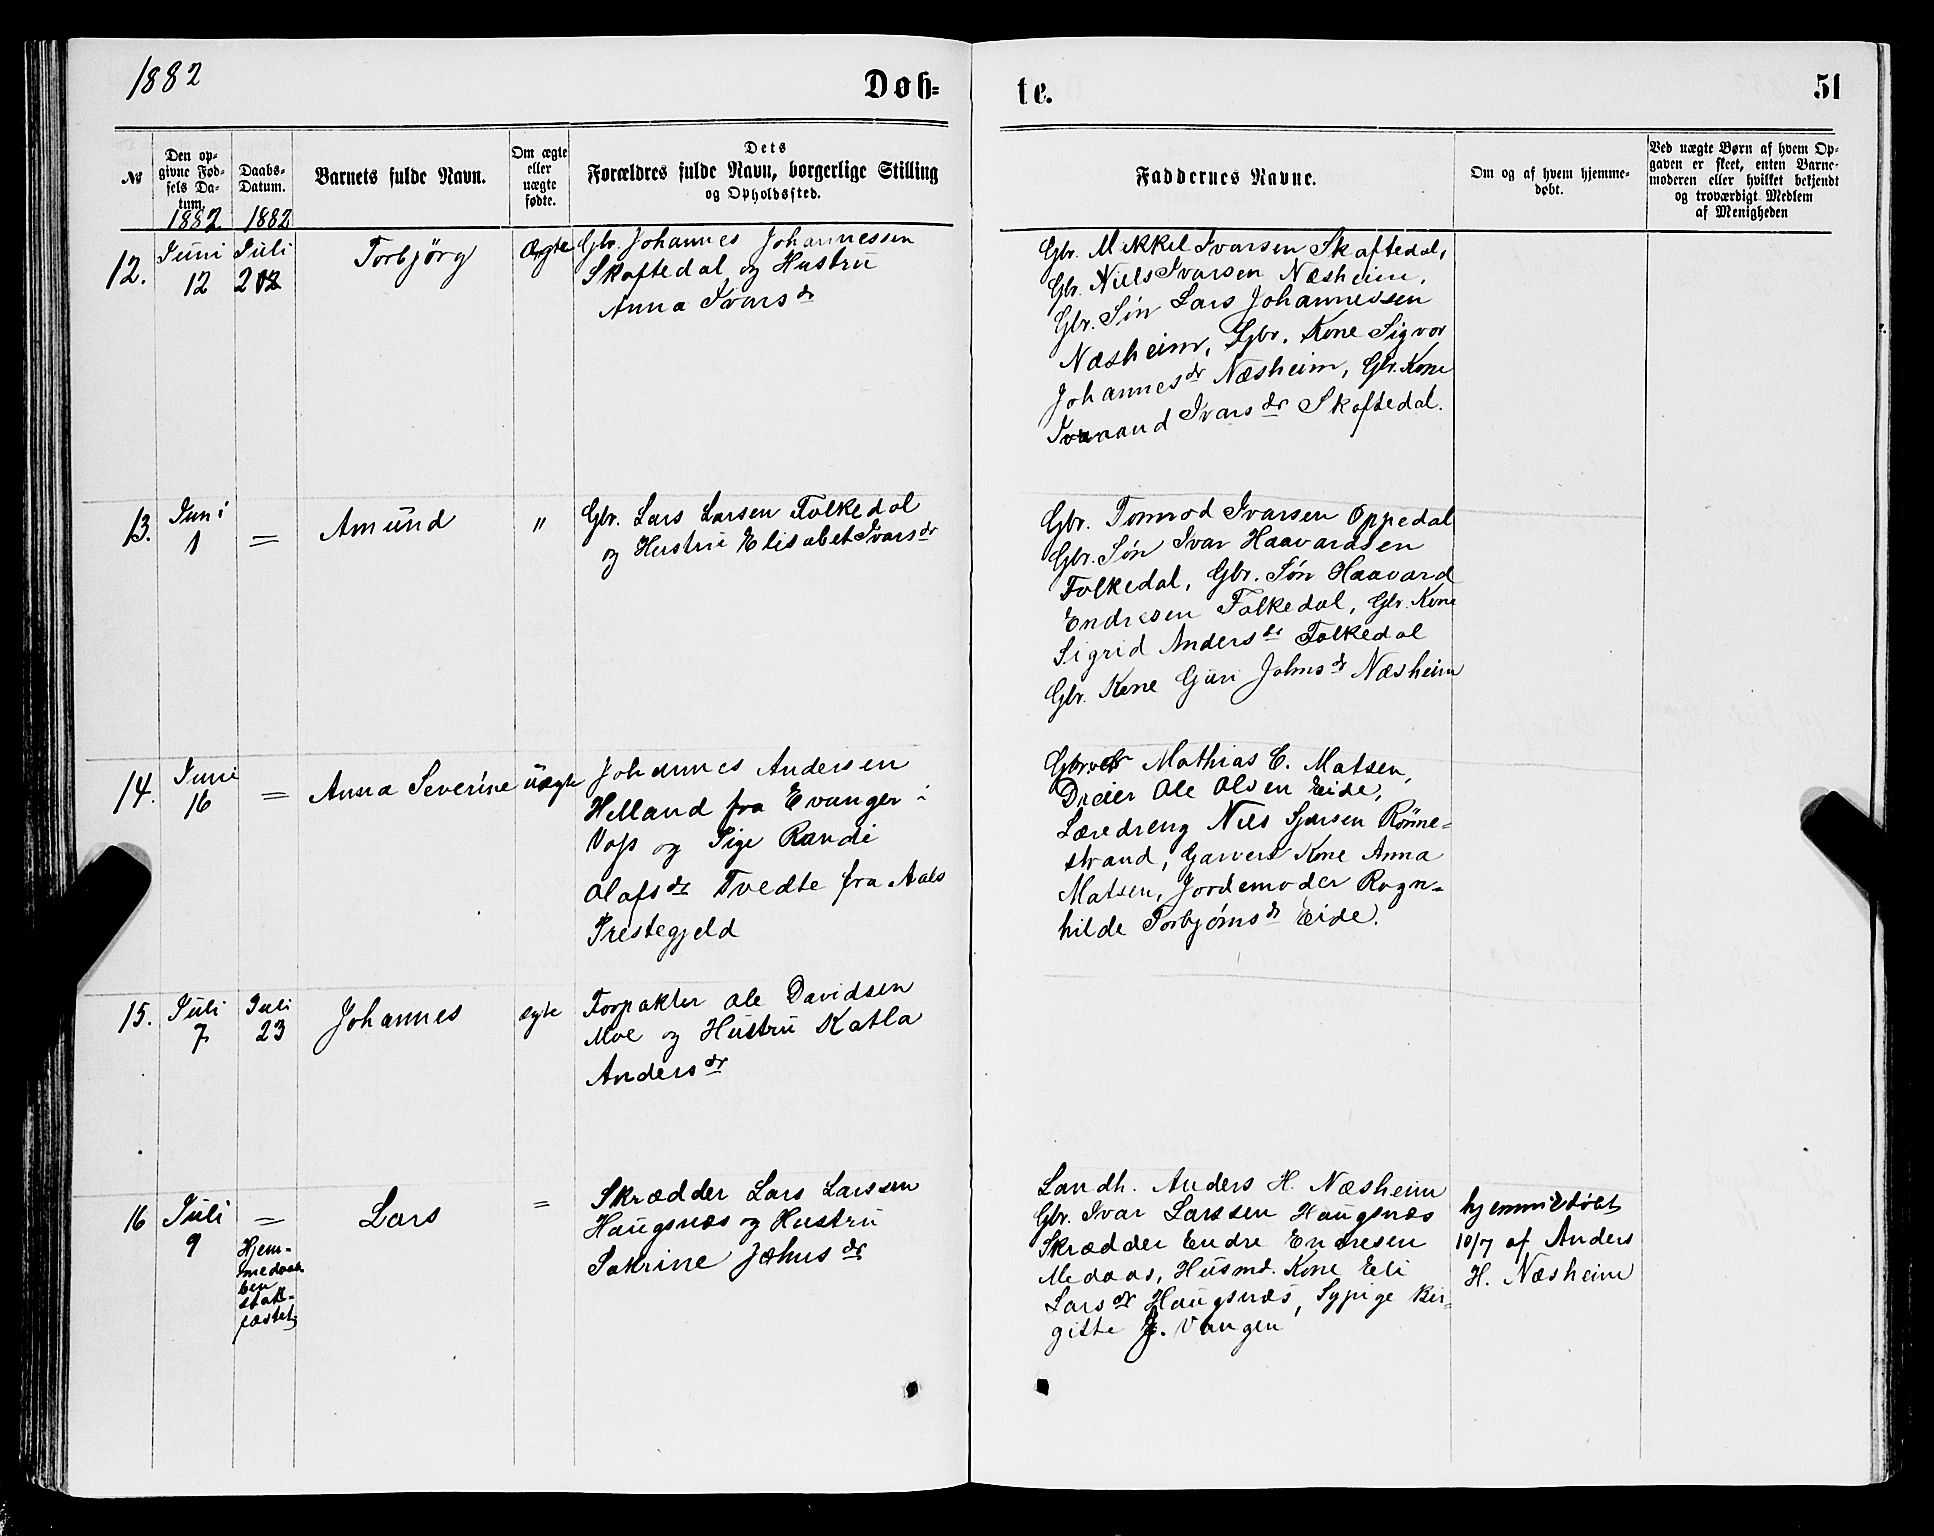 1882
Døb-
te.
51
№
Den op-
givne Fød-
sels Da-
tum.
1882
Daabs-
Datum.
1882
Barnets fulde Navn.
Om ægte
eller
uægte
fødte.
Dets
Forældres fulde Navn, borgerlige Stilling
og Opholdssted.
Faddernes Navne.
Om og af hvem hjemme-
døbt.
Ved uægte Børn af hvem Op-
gaven er skeet, enten Barne-
moderen eller hvilket bekjendt
og troværdigt Medlem
af Menigheden
12.
Juni
12
Juli
2
Torbjörg
Ægte
Gbr. Johannes Johannessen
Skaftedal og Hustru
Anna Ivarsdr
Gbr. Mikkel Ivarsen Skaftedal,
Gbr. Niels Ivarsen Næsheim,
Gbr. Søn Lars Johannessen
Næsheim, Gbr. Kone Sigvor
Johannesdr Næsheim, Gbr. Kone
Ivarsdr Skaftedal.
13.
Juni
1
=
Amund
"
Gbr. Lars Larsen Folkedal
og Hustru Elisabet Ivarsdr
Gbr. Tormod Ivarsen Oppedal
Gbr. Søn Ivar Haavardsen
Folkedal, Gbr. Søn Haavard
Endresen Folkedal, Gbr. Kone
Sigrid Andersdr Folkedal
Gbr. Kone Guri Johnsdr Næsheim
14.
Juni
16
=
Anna Severine
uægte
Johannes Andersen
Helland fra Evanger i
Voss og Pige Randi
Olafsdr Tvedte fra Aals
Prestegjeld
Mathias C. Matsen,
Dreier Ole Olsen Eide,
Læredreng Nils Sjursen Rønne-
strand, Garvers Kone Anna
Matsen, Jordemoder Ragn-
hilde Torbjørnsdr Eide.
15.
Juli
7
Juli
23
Johannes
ægte
Forpakter Ole Davidsen
Moe og Hustru Katla
Andersdr
16
Juli
9
=
Hjem-
medaa-
ben
stad-
fæstet
Lars
=
Skrædder Lars Larssen
Haugsnæs og Hustru
Sakrine Jæhnsdr
Landh. Anders H. Næsheim
Gbr. Ivar Larssen Haugsnæs
Skrædder Endre Endresen
Medaas, Husmd. Kone Eli
Larsdr Haugsnæs, Sypige Bir-
gitte J. Vangen
hjemmedøbt
10/7 af Anders
H. Næsheim